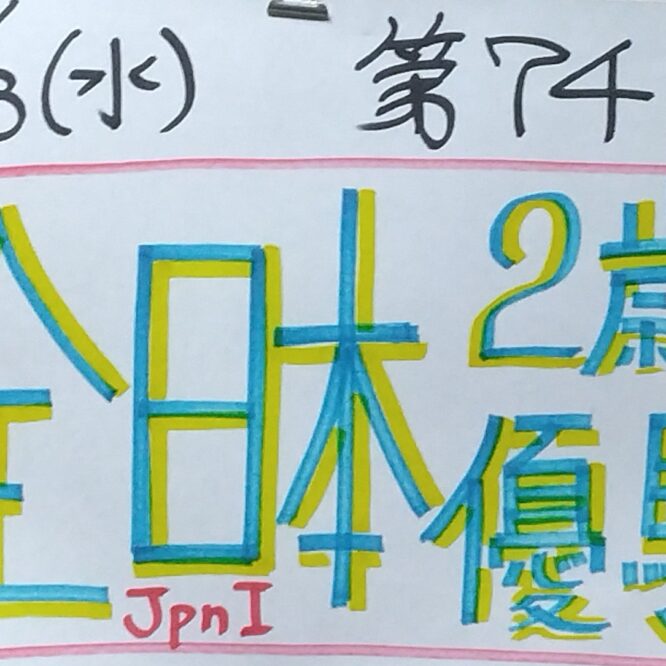 3(水) 第74
全日本 2歳
優駿
JpnI